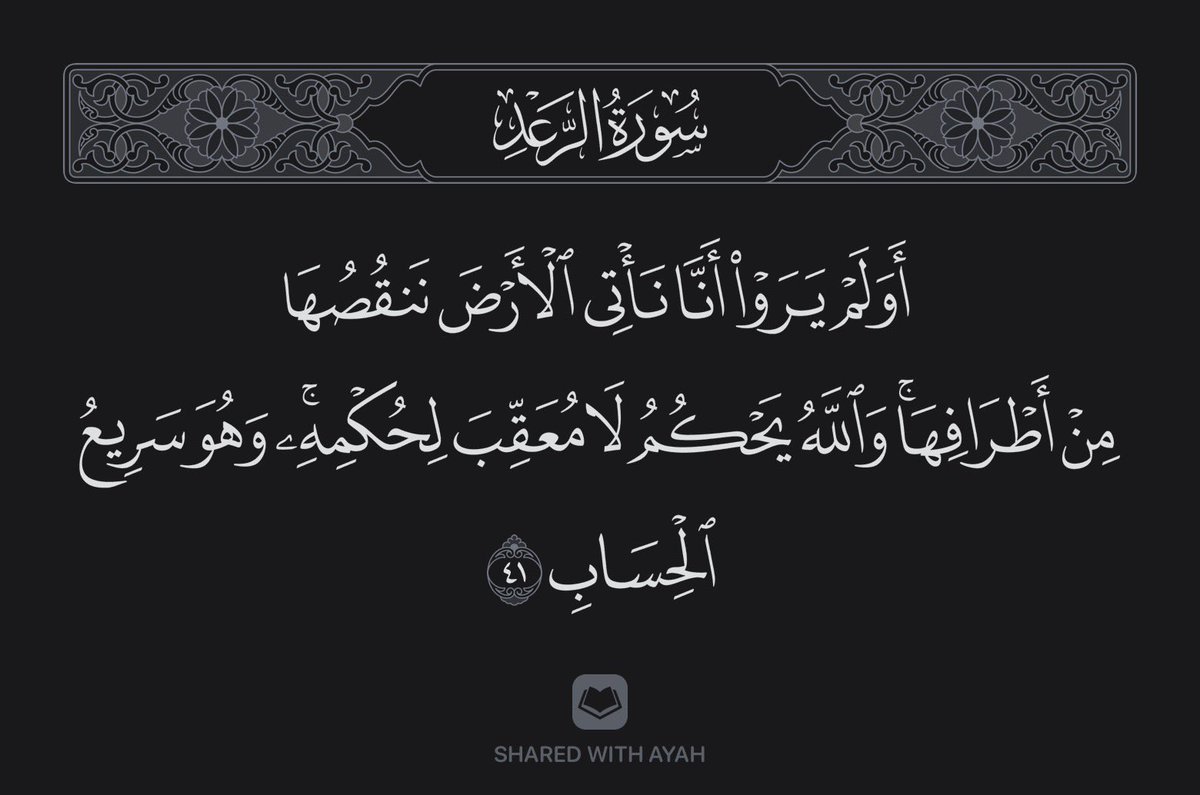 سُورَةُ الرَّعْدِ
أَوَلَمْ يَرَوْا۟ أَنَّا نَأْتِى ٱلْأَرْضَ نَنقُصُهَا
مِنْ أَطْرَافِهَا ۚ وَٱللَّهُ يَحْكُمُ لَا مُعَقِّبَ لِحُكْمِهِۦ ۚ وَهُوَ سَرِيعُ
ٱلْحِسَابِ ٤١
SHARED WITH AYAH